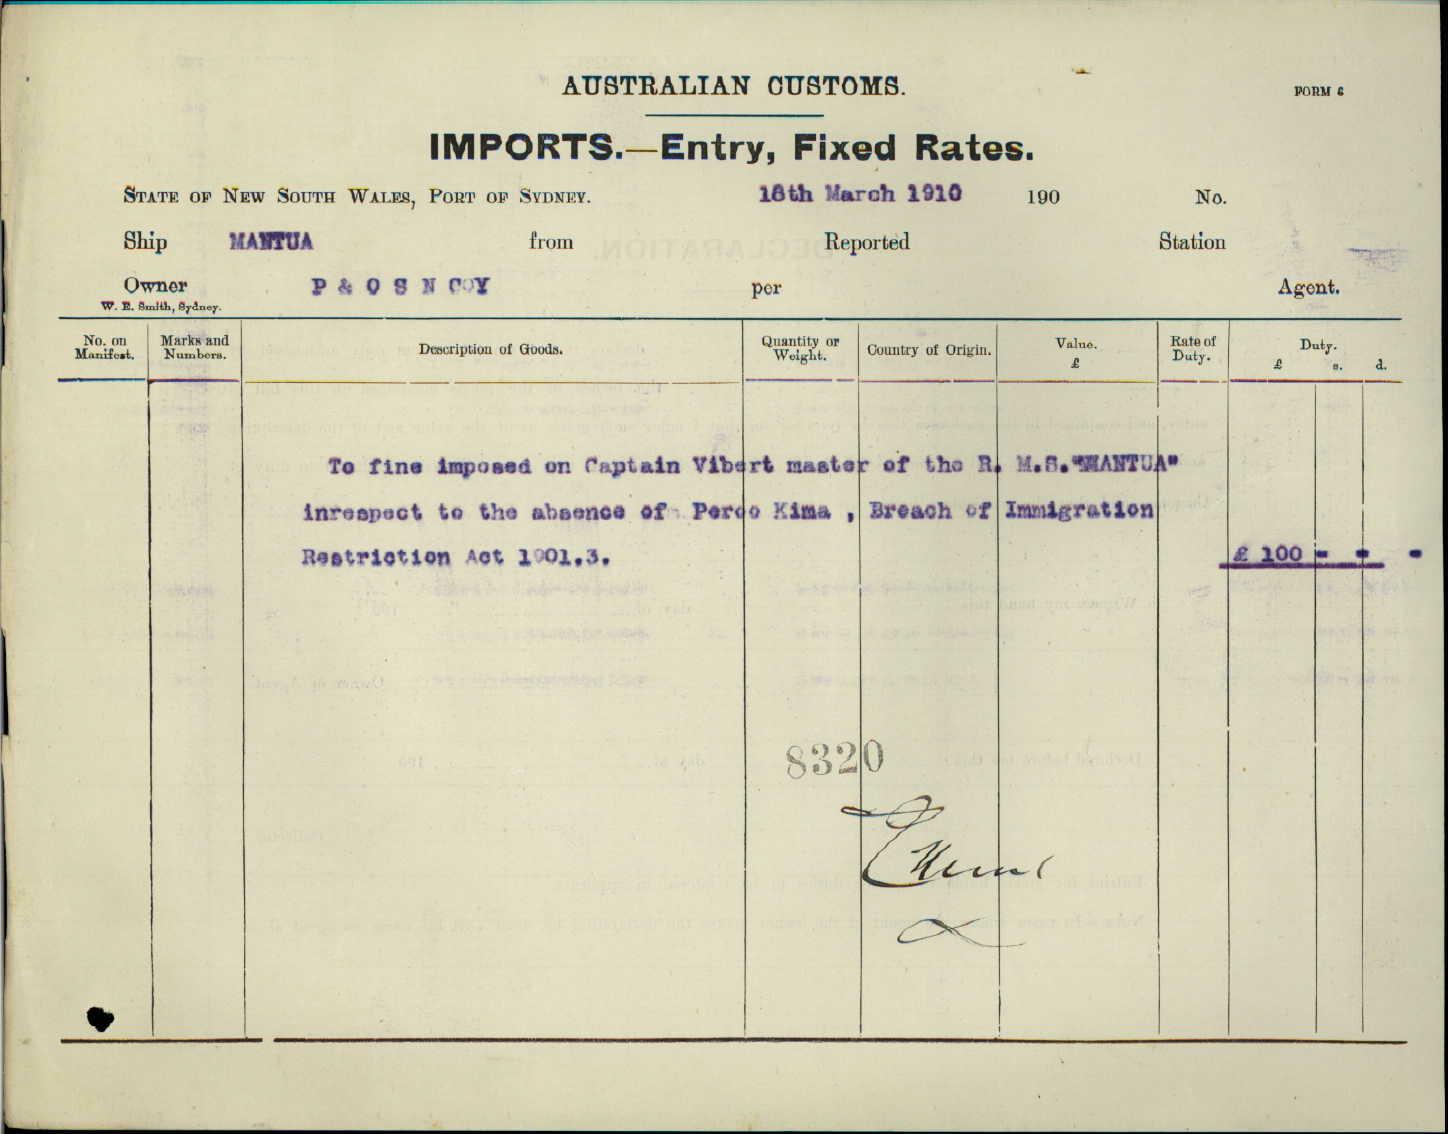 AUSTRALIAN CUSTOMS.
FORM 6
IMPORTS.—Entry, Fixed Rates.
STATE OF NEW SOUTH WALES, PORT OF SYDNEY. 18th March 1910 190 No.
Ship MANTUA from Reported Station
Owner P & O S N COY per Agent.
W. E. Smith, Sydney.
No. on Manifest. Marks and Numbers. Description of Goods. Quantity or Weight. Country of Origin. Value. £ Rate of Duty. Duty. £ s. d.
To fine imposed on Captain Vibert master of the R. M.S."MANTUA"
inrespect to the absence of Peroo Kima , Breach of Immigration
Restriction Act 1901.3.
£ 100 - - -
8320